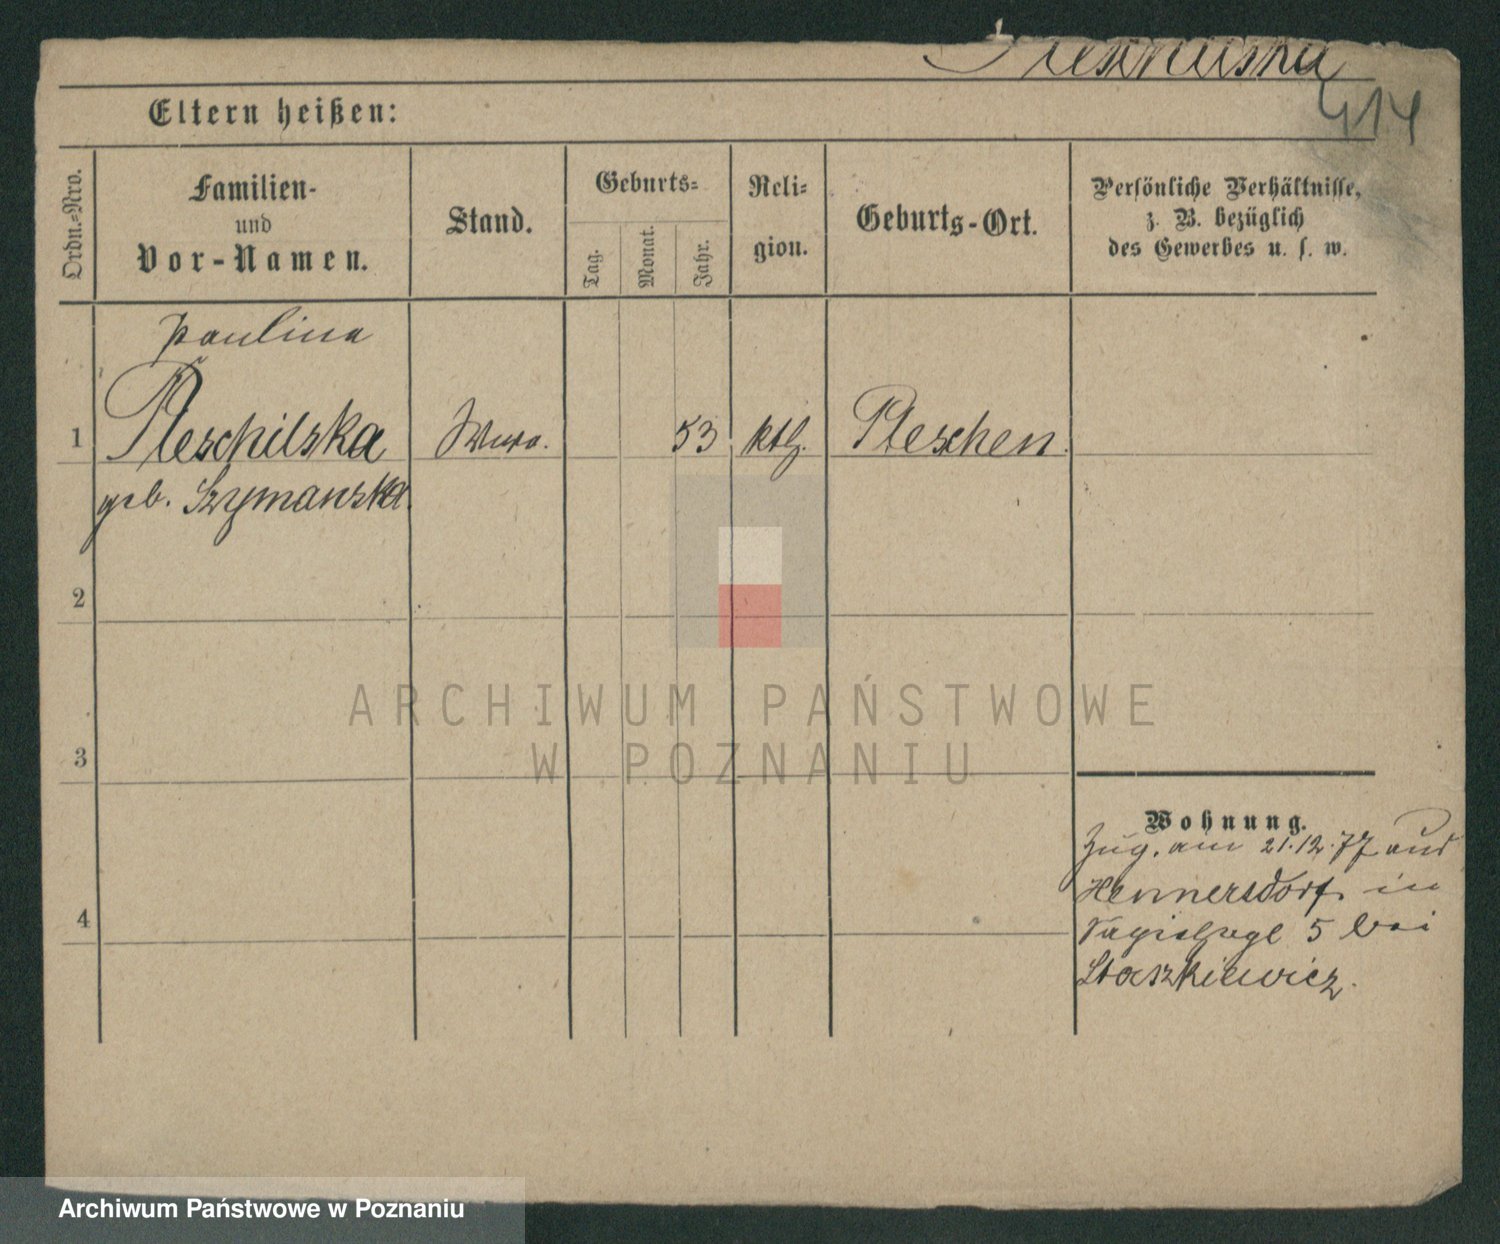 Pleschilska
414
Eltern heißen:
Ordn.=Nro.
Familien-
und
Vor-Namen.
Stand.
Geburts=
Tag.
Monat.
Jahr.
Reli=
gion.
Geburts-Ort.
Persönliche Verhältnisse,
z. B. bezüglich
des Gewerbes u. s. w.
Paulina
1 Pleschilska 53 kth. Pleschen.
geb. Szymanska.
2
3
4
Wohnung.
Zug. am 21.12.77 aus
Hennersdorf in
5 bei
Staszkiewicz.
ARCHIWUM PAŃSTWOWE
W POZNANIU
Archiwum Państwowe w Poznaniu